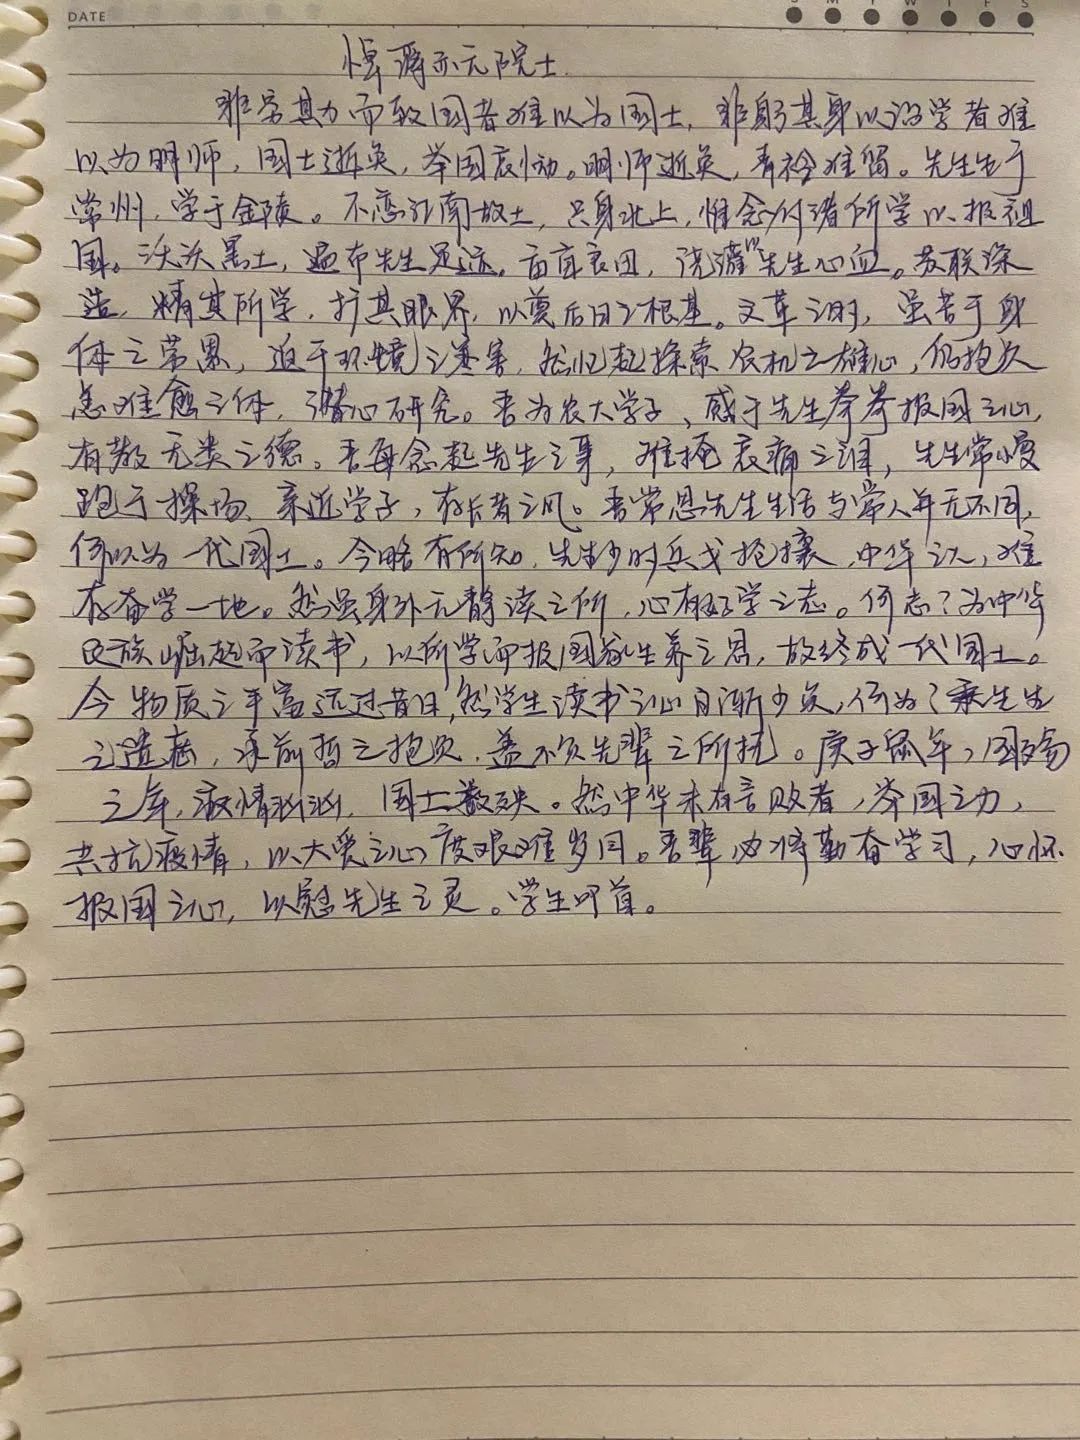 DATE
S M T W T F S
悼蒋亦元院士
非常其力而致国者难以为国士，非躬其身以治学者难
以为明师，国士逝矣，举国哀恸。明师逝矣，青衿难留。先生生于
常州，学于金陵。不恋江南故土，只身北上，惟念付诸所学以报祖
国。沃沃黑土，遍布先生足迹，亩亩良田，浇灌先生心血。苏联深
造，精其所学，扩其眼界，以奠后日之根基。文革之时，虽苦于身
体之劳累，迫于环境之寒害，然忆起探索农机之雄心，仍抱久
恙难愈之体，潜心研究。吾为农大学子、感于先生拳拳报国之心，
有教无类之德。吾每念起先生之事，难掩哀痛之泪，先生常慢
跑于操场，亲近学子，存长者之风。吾常思先生生活与常人并无不同，
何以为一代国士。今略有所知，先生少时兵戈抢攘，中华之人，难
存奋学一地。然虽身外无静读之所，心有好学之志。何志？为中华
民族崛起而读书，以所学而报国家生养之恩，故终成一代国士。
今物质之丰富远过昔日，然学生读书之心日渐少矣，何为？秉先生
之遗志，承前哲之抱负，盖不负先辈之所托。庚子鼠年，国殇
之年，疫情汹汹，国士数殁。然中华未有言败者，举国之力，
共抗疫情，以大爱之心度艰难岁月。吾辈必将勤奋学习，心怀
报国之心，以慰先生之灵。学生叩首。